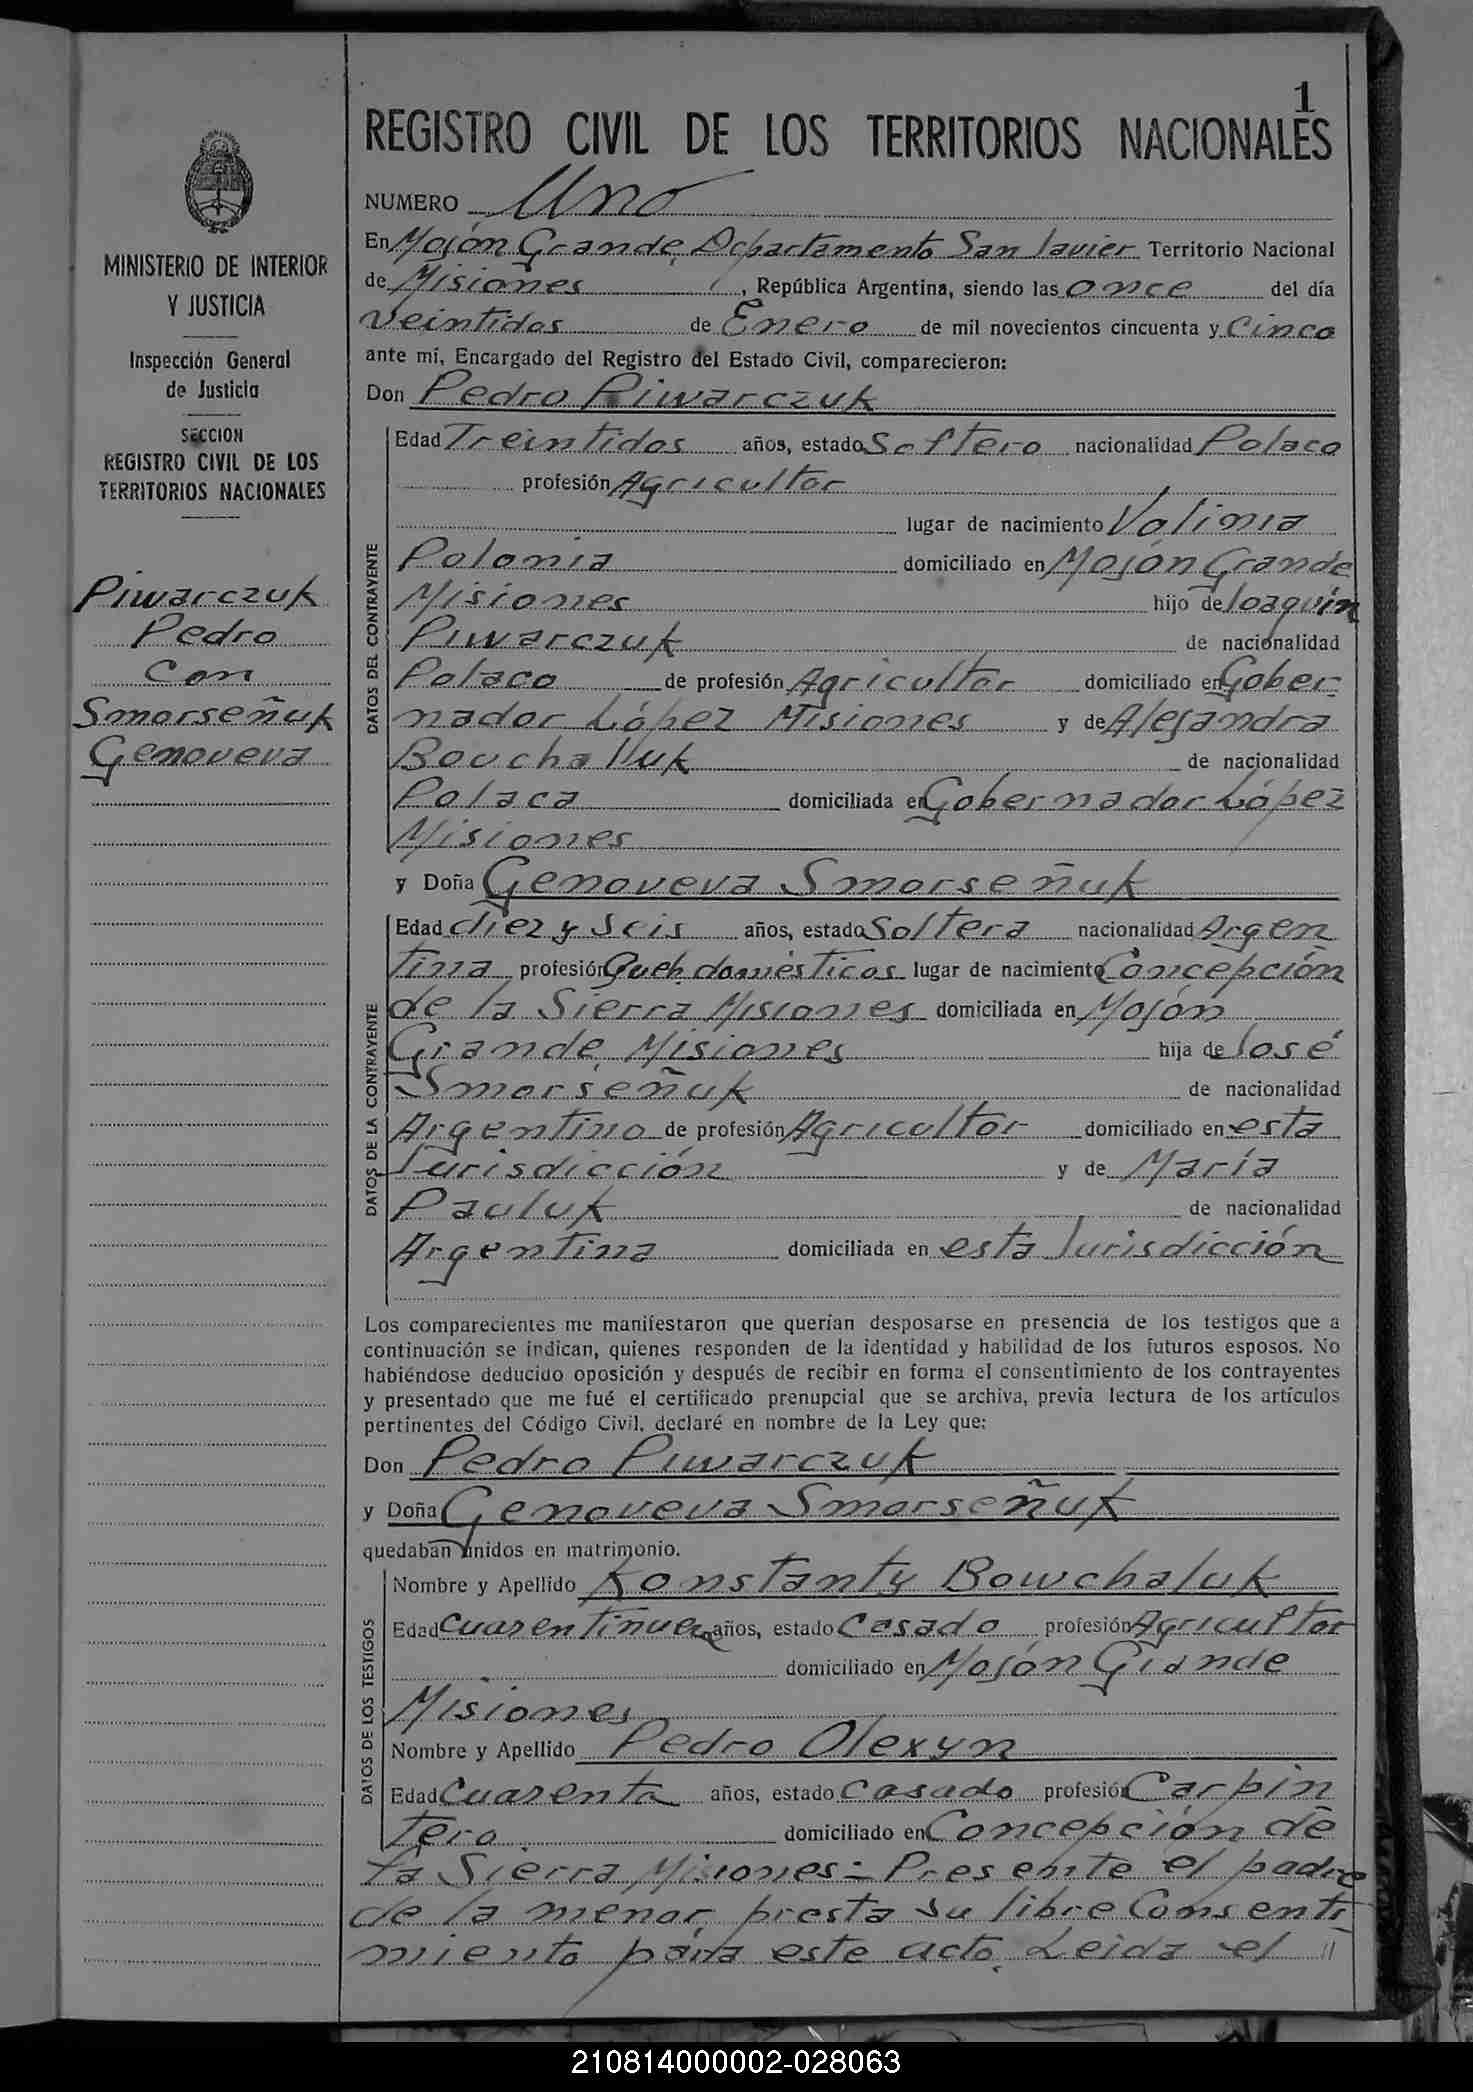 1
REGISTRO CIVIL DE LOS TERRITORIOS NACIONALES
MINISTERIO DE INTERIOR
Y JUSTICIA
Inspección General
de Justicia
SECCION
REGISTRO CIVIL DE LOS
TERRITORIOS NACIONALES
Piwarczuk
Pedro
Con
Smorseñuk
Genoveva
NUMERO Uno
En Mojón Grande, Departamento San Javier Territorio Nacional
de Misiones, República Argentina, siendo las once del día
veintidos de Enero de mil novecientos cincuenta y Cinco
ante mí, Encargado del Registro del Estado Civil, comparecieron:
Don Pedro Piwarczuk
DATOS DEL CONTRAYENTE
Edad Treintidos años, estado Soltero nacionalidad Polaco
profesión Agricultor
lugar de nacimiento Volinia
Polonia domiciliado en Mojón Grande
Misiones hijo de Joaquín
Piwarczuk de nacionalidad
Polaco de profesión Agricultor domiciliado en Gober-
nador López Misiones y de Alejandra
Bouchaluk de nacionalidad
Polaca domiciliada en Gobernador López
Misiones
y Doña Genoveva Smorseñuk
DATOS DE LA CONTRAYENTE
Edad diez y seis años, estado Soltera nacionalidad Argen
tina profesión Queh. domésticos lugar de nacimiento Concepción
de la Sierra Misiones domiciliada en Mojón
Grande, Misiones hija de José
Smorseñuk de nacionalidad
Argentino de profesión Agricultor domiciliado en esta
Jurisdicción y de María
Pauluk de nacionalidad
Argentina domiciliada en esta Jurisdicción
Los comparecientes me manifestaron que querían desposarse en presencia de los testigos que a
continuación se indican, quienes responden de la identidad y habilidad de los futuros esposos. No
habiéndose deducido oposición y después de recibir en forma el consentimiento de los contrayentes
y presentado que me fué el certificado prenupcial que se archiva, previa lectura de los artículos
pertinentes del Código Civil, declaré en nombre de la Ley que:
Don Pedro Piwarczuk
y Doña Genoveva Smorseñuk
quedaban unidos en matrimonio.
DATOS DE LOS TESTIGOS
Nombre y Apellido Konstanty Bowchaluk
Edad Cuarentinueve años, estado Casado profesión Agricultor
domiciliado en Mojón Grande
Misiones
Nombre y Apellido Pedro Olexyn
Edad Cuarenta años, estado Casado profesión Carpin
tero domiciliado en Concepción de
la Sierra Misiones - Presente el padre
de la menor presta su libre Consenti-
miento para este acto. Leida el //
210814000002-028063